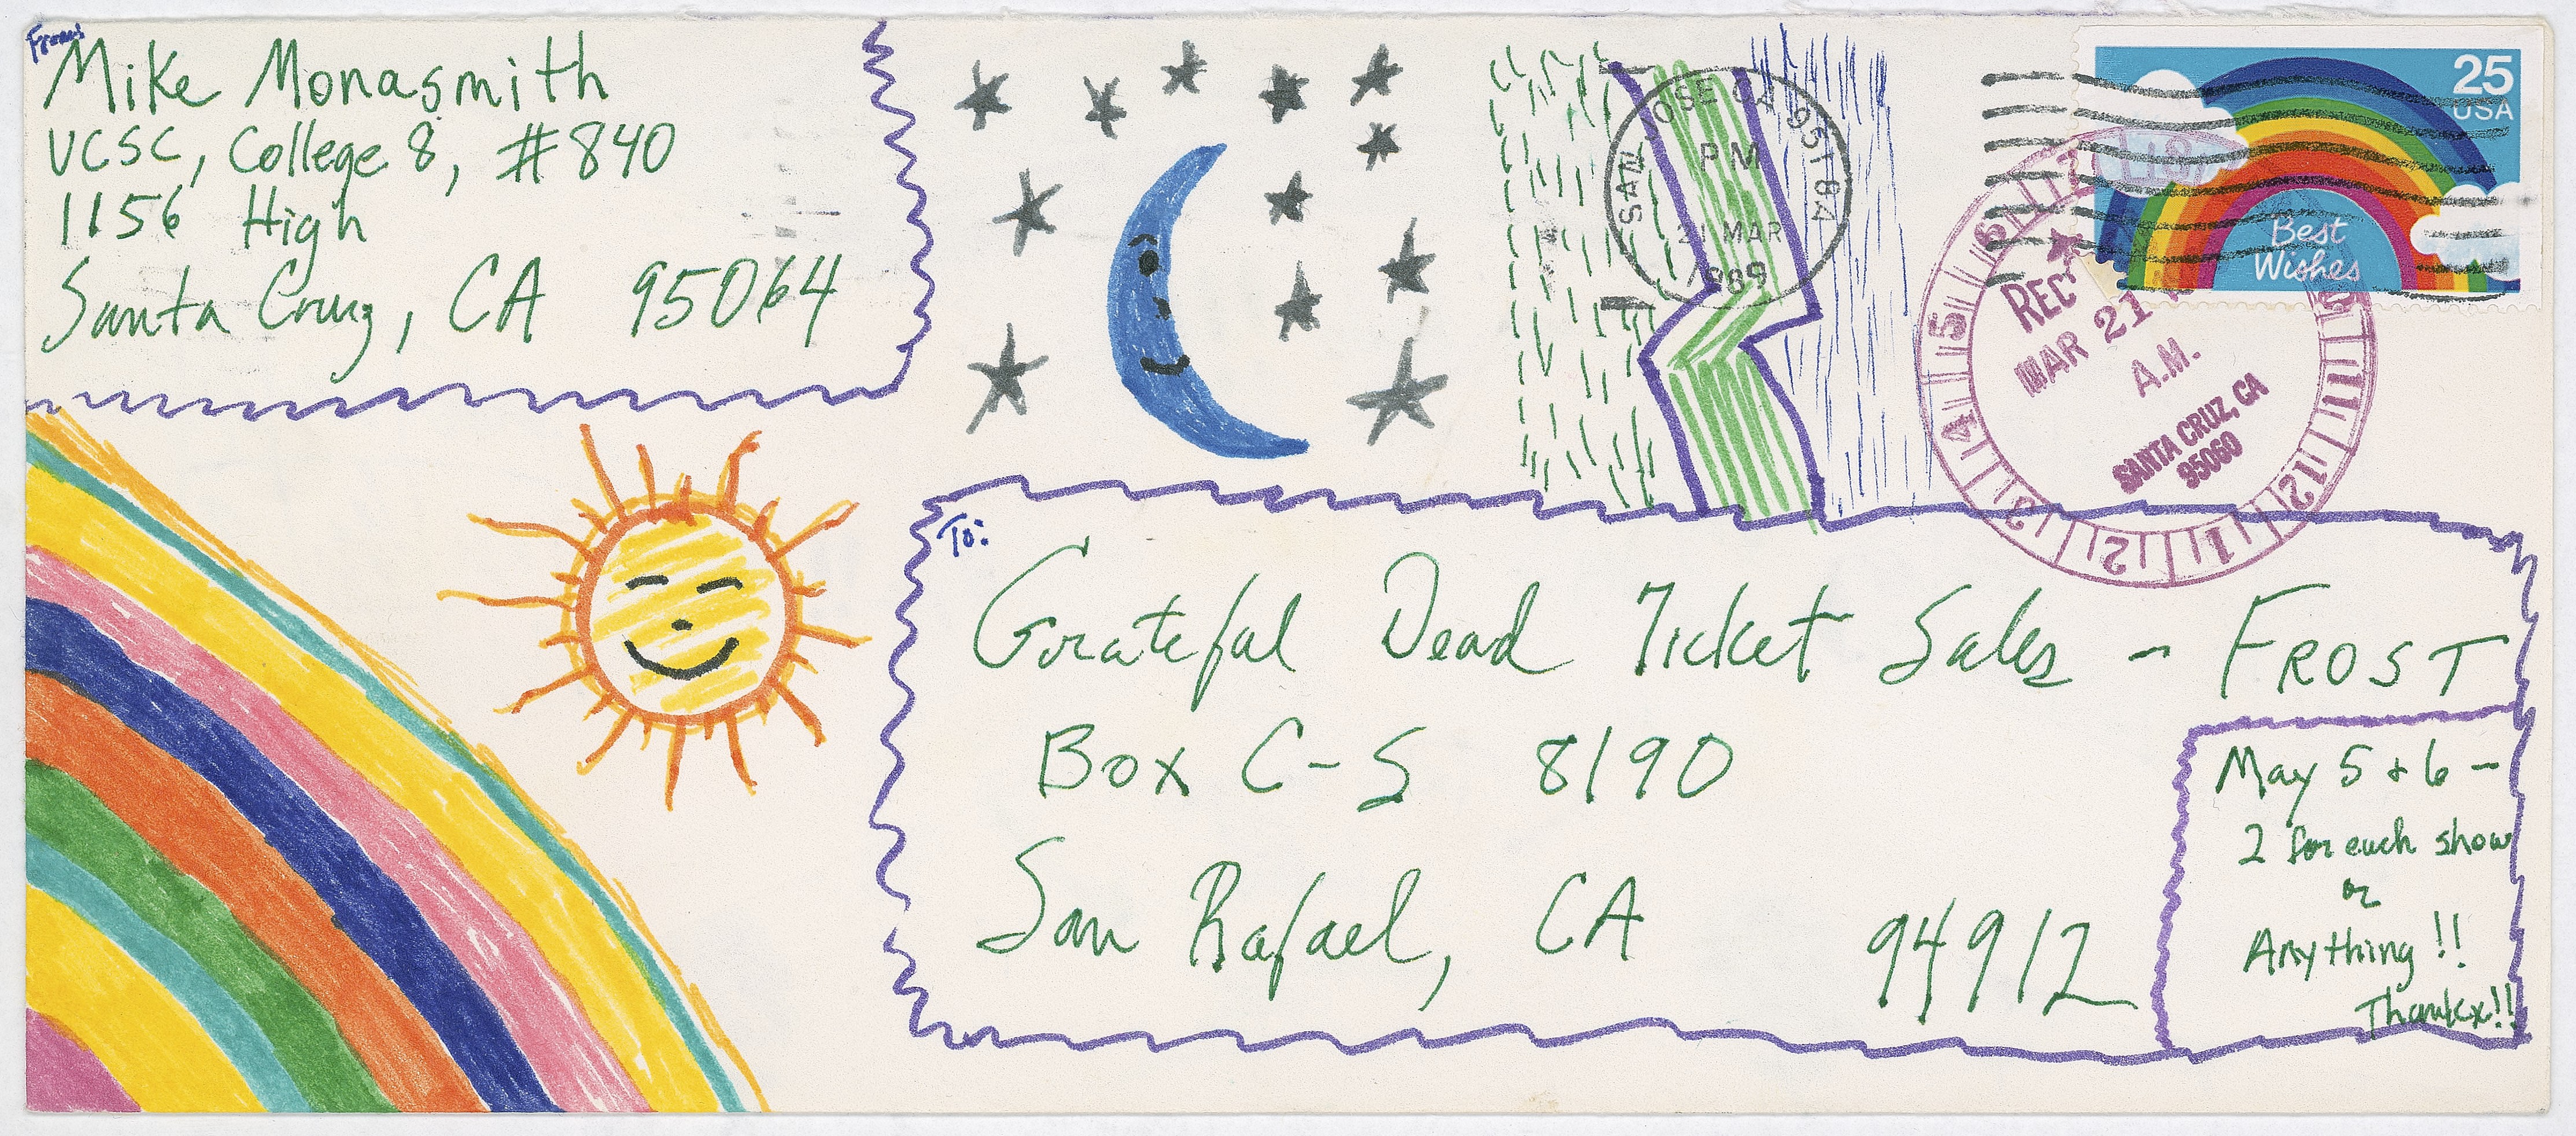 From:
Mike Monasmith
UCSC, College 8, #840
1156 High
Santa Cruz, CA 95064
SAN JOSE CA 951 8A
PM
21 MAR
1989
25
USA
Best
Wishes
REC'
MAR 21
A.M.
SANTA CRUZ, CA
95060
To:
Grateful Dead Ticket Sales - FROST
Box C-S 8190
San Rafael, CA 94912
May 5 + 6 -
2 for each show
or
Anything!!
Thankx!!